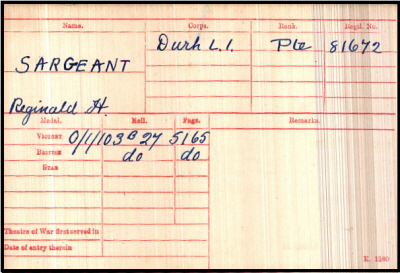 Name. Corps. Rank. Regtl. No.
SARGEANT Durh L.I. Pte 81672
Reginald H.
Medal. Roll. Page. Remarks.
VICTORY O/1/103 B 27 5165
BRITISH do do
STAR
Theatre of War first served in
Date of entry therein
K. 1380